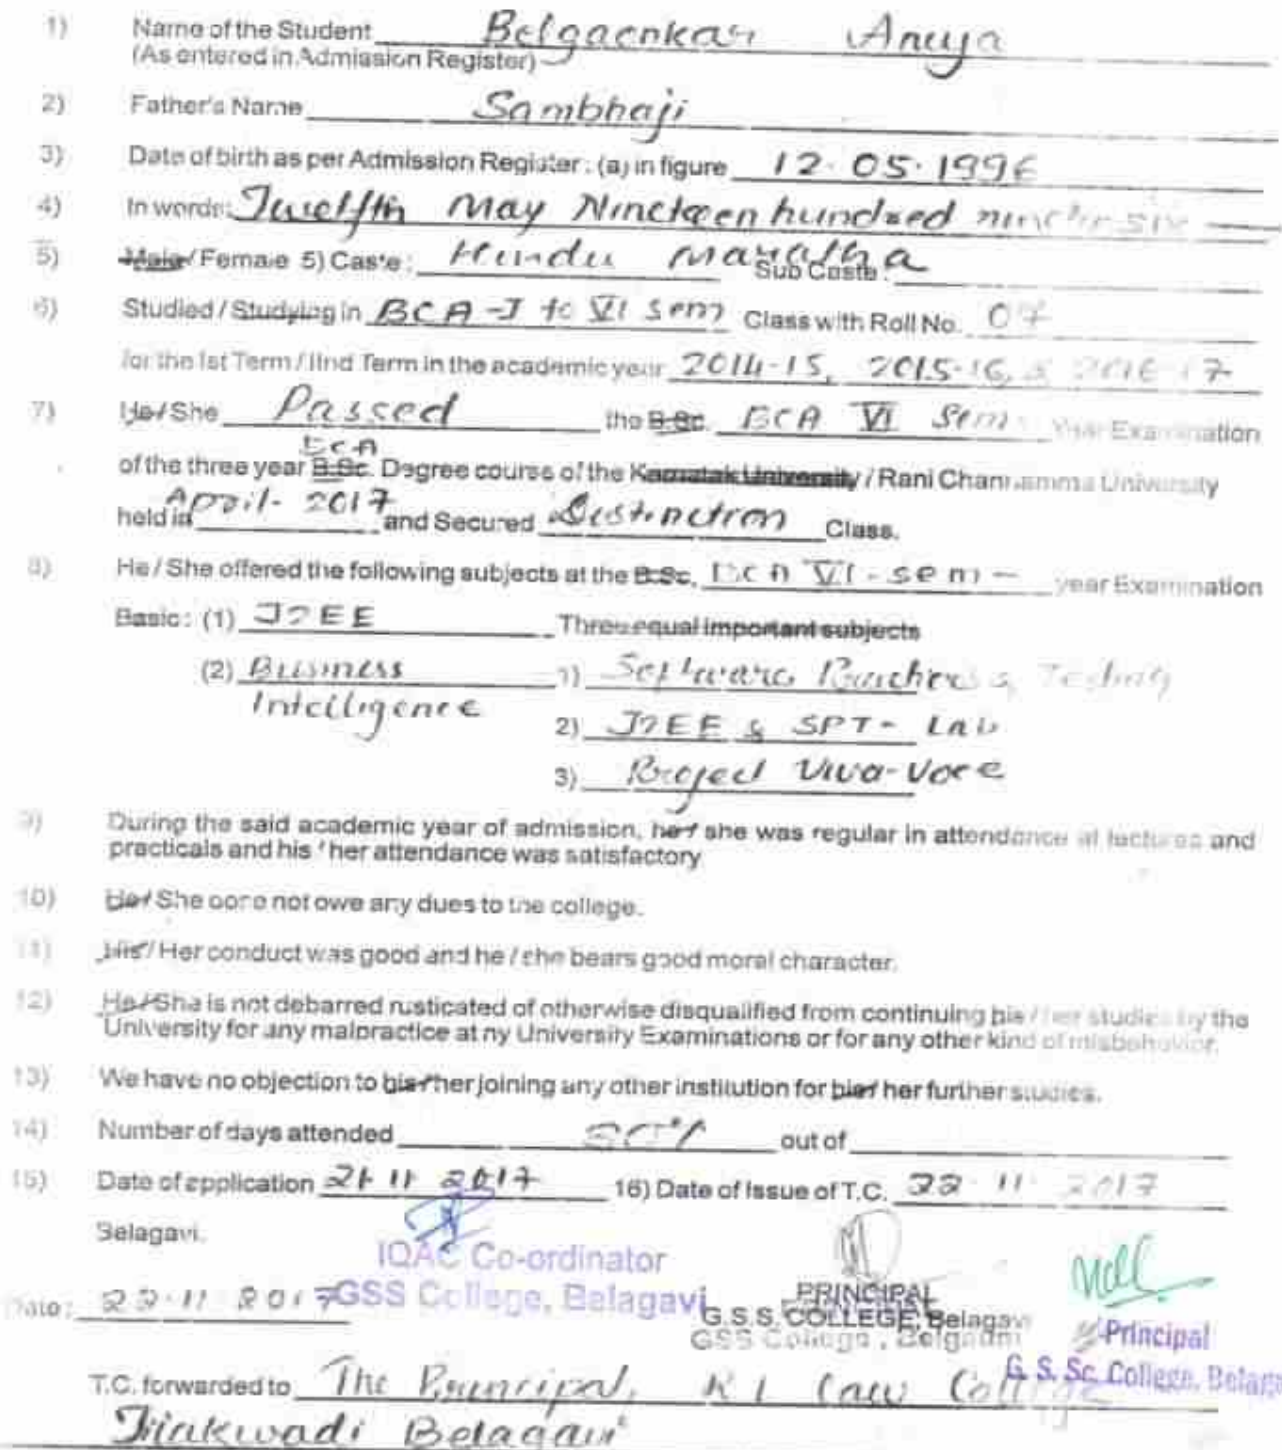 1) Name of the Student Belgaonkar Anuja
(As entered in Admission Register)
2) Father's Name Sambhaji
3) Date of birth as per Admission Register : (a) in figure 12.05.1996
4) In words: Twelfth May Nineteen hundred ninety six
5) Male / Female 5) Caste : Hindu Maratha Sub Caste :
6) Studied / Studying in BCA -I to VI sem Class with Roll No. 07
for the Ist Term / IInd Term in the academic year 2014-15, 2015-16, & 2016-17
7) He / She Passed the B.Sc. BCA VI Sem Year Examination
BCA
of the three year B.Sc. Degree course of the Karnatak University / Rani Channamma University
held in April- 2017 and Secured Distinction Class.
8) He / She offered the following subjects at the B.Sc. BCA VI - sem - year Examination
Basic : (1) J2EE Three equal important subjects
(2) Business Intelligence 1) Software & Testing
2) J2EE & SPT - Lab
3) Project Viva-Voce
9) During the said academic year of admission, he / she was regular in attendance at lectures and
practicals and his / her attendance was satisfactory
10) He / She not owe any dues to the college.
11) His / Her conduct was good and he / she bears good moral character.
12) He / She is not debarred rusticated of otherwise disqualified from continuing his / her studies by the
University for any malpractice at ny University Examinations or for any other kind of misbehavior.
13) We have no objection to his / her joining any other institution for his / her further studies.
14) Number of days attended out of
15) Date of application 21 11 2017 16) Date of Issue of T.C. 22 11 2017
Belagavi.
IQAC Co-ordinator
GSS College, Belagavi
Date : 22.11.2017
PRINCIPAL
G.S.S. COLLEGE, Belagavi
GSS College, Belgaum
Principal
G. S. Sc. College, Belaga
T.C. forwarded to The Principal, Law College
Tilakwadi Belagavi